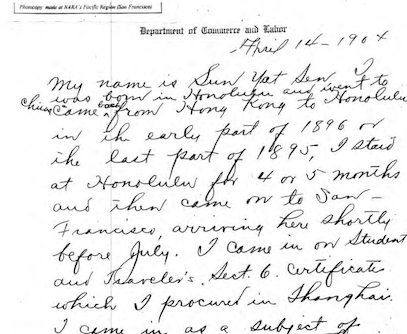 Photocopy made at NARA's Pacific Region (San Francisco)
Department of Commerce and Labor
April 14-1904
My name is Sun Yat Sen, I
was born in Honolulu and went to
China
back
Came from Hong Kong to Honolulu
in the early part of 1896 or
the last part of 1895, I staid
at Honolulu for 4 or 5 months
and then came on to San-
Francisco, arriving here shortly
before July. I came in on Student
and Traveler's. Sect. 6. certificate
which I procured in Shanghai.
I came in as a subject of